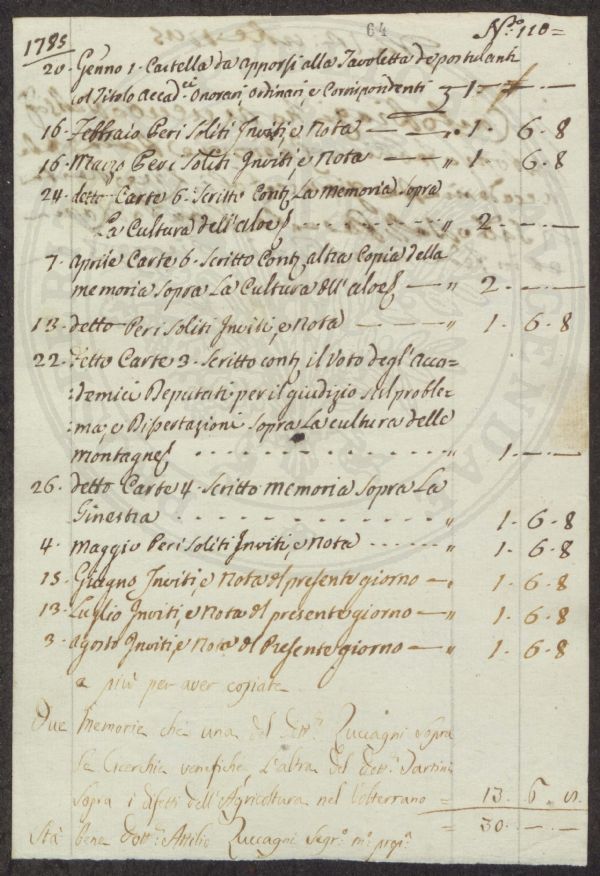 64
N.ro 110=
1785
20. Genno 1. Cartella da apporsi alla Tavoletta de postulanti
col Titolo Accad.ci Onorari, Ordinari, e Corrispondenti 1. — —
16. Febbraio Per i Soliti Inviti, e Nota — — „ 1. 6. 8
16. Marzo Per i Soliti Inviti, e Nota — „ 1. 6. 8
24. detto Carte 6. Scritto Cont. La Memoria sopra
La Cultura dell'aloe „ 2. — —
7. aprile Carte 6. Scritto Cont. altra Copia della
memoria sopra La Cultura dell'aloe — „ 2. — —
13. detto Per i Soliti Inviti, e Nota — „ 1. 6. 8
22. detto Carte 3. Scritto cont. il Voto degl'Acca-
:demici Deputati per il giudizio sul proble-
:ma, e Dissertazioni sopra La cultura delle
montagne „ 1. — —
26. detto Carte 4. Scritto Memoria sopra La
Ginestra „ 1. 6. 8
4. Maggio Per i Soliti Inviti, e Nota „ 1. 6. 8
15. Giugno Inviti, e Nota del presente giorno — „ 1. 6. 8
13. Luglio Inviti, e Nota del presente giorno — „ 1. 6. 8
3. agosto Inviti, e Nota del Presente giorno — „ 1. 6. 8
e più per aver copiate
Due Memorie che una del dott.r Zuccagni sopra
Le Cicerchie venefiche, e l'altra del dott.r Tartini
sopra i difetti dell'Agricoltura nel Volterrano = 13. 6. 8.
= 30. — —
Stà bene Dott.r Attilio Zuccagni Segr.o m.o prop.o